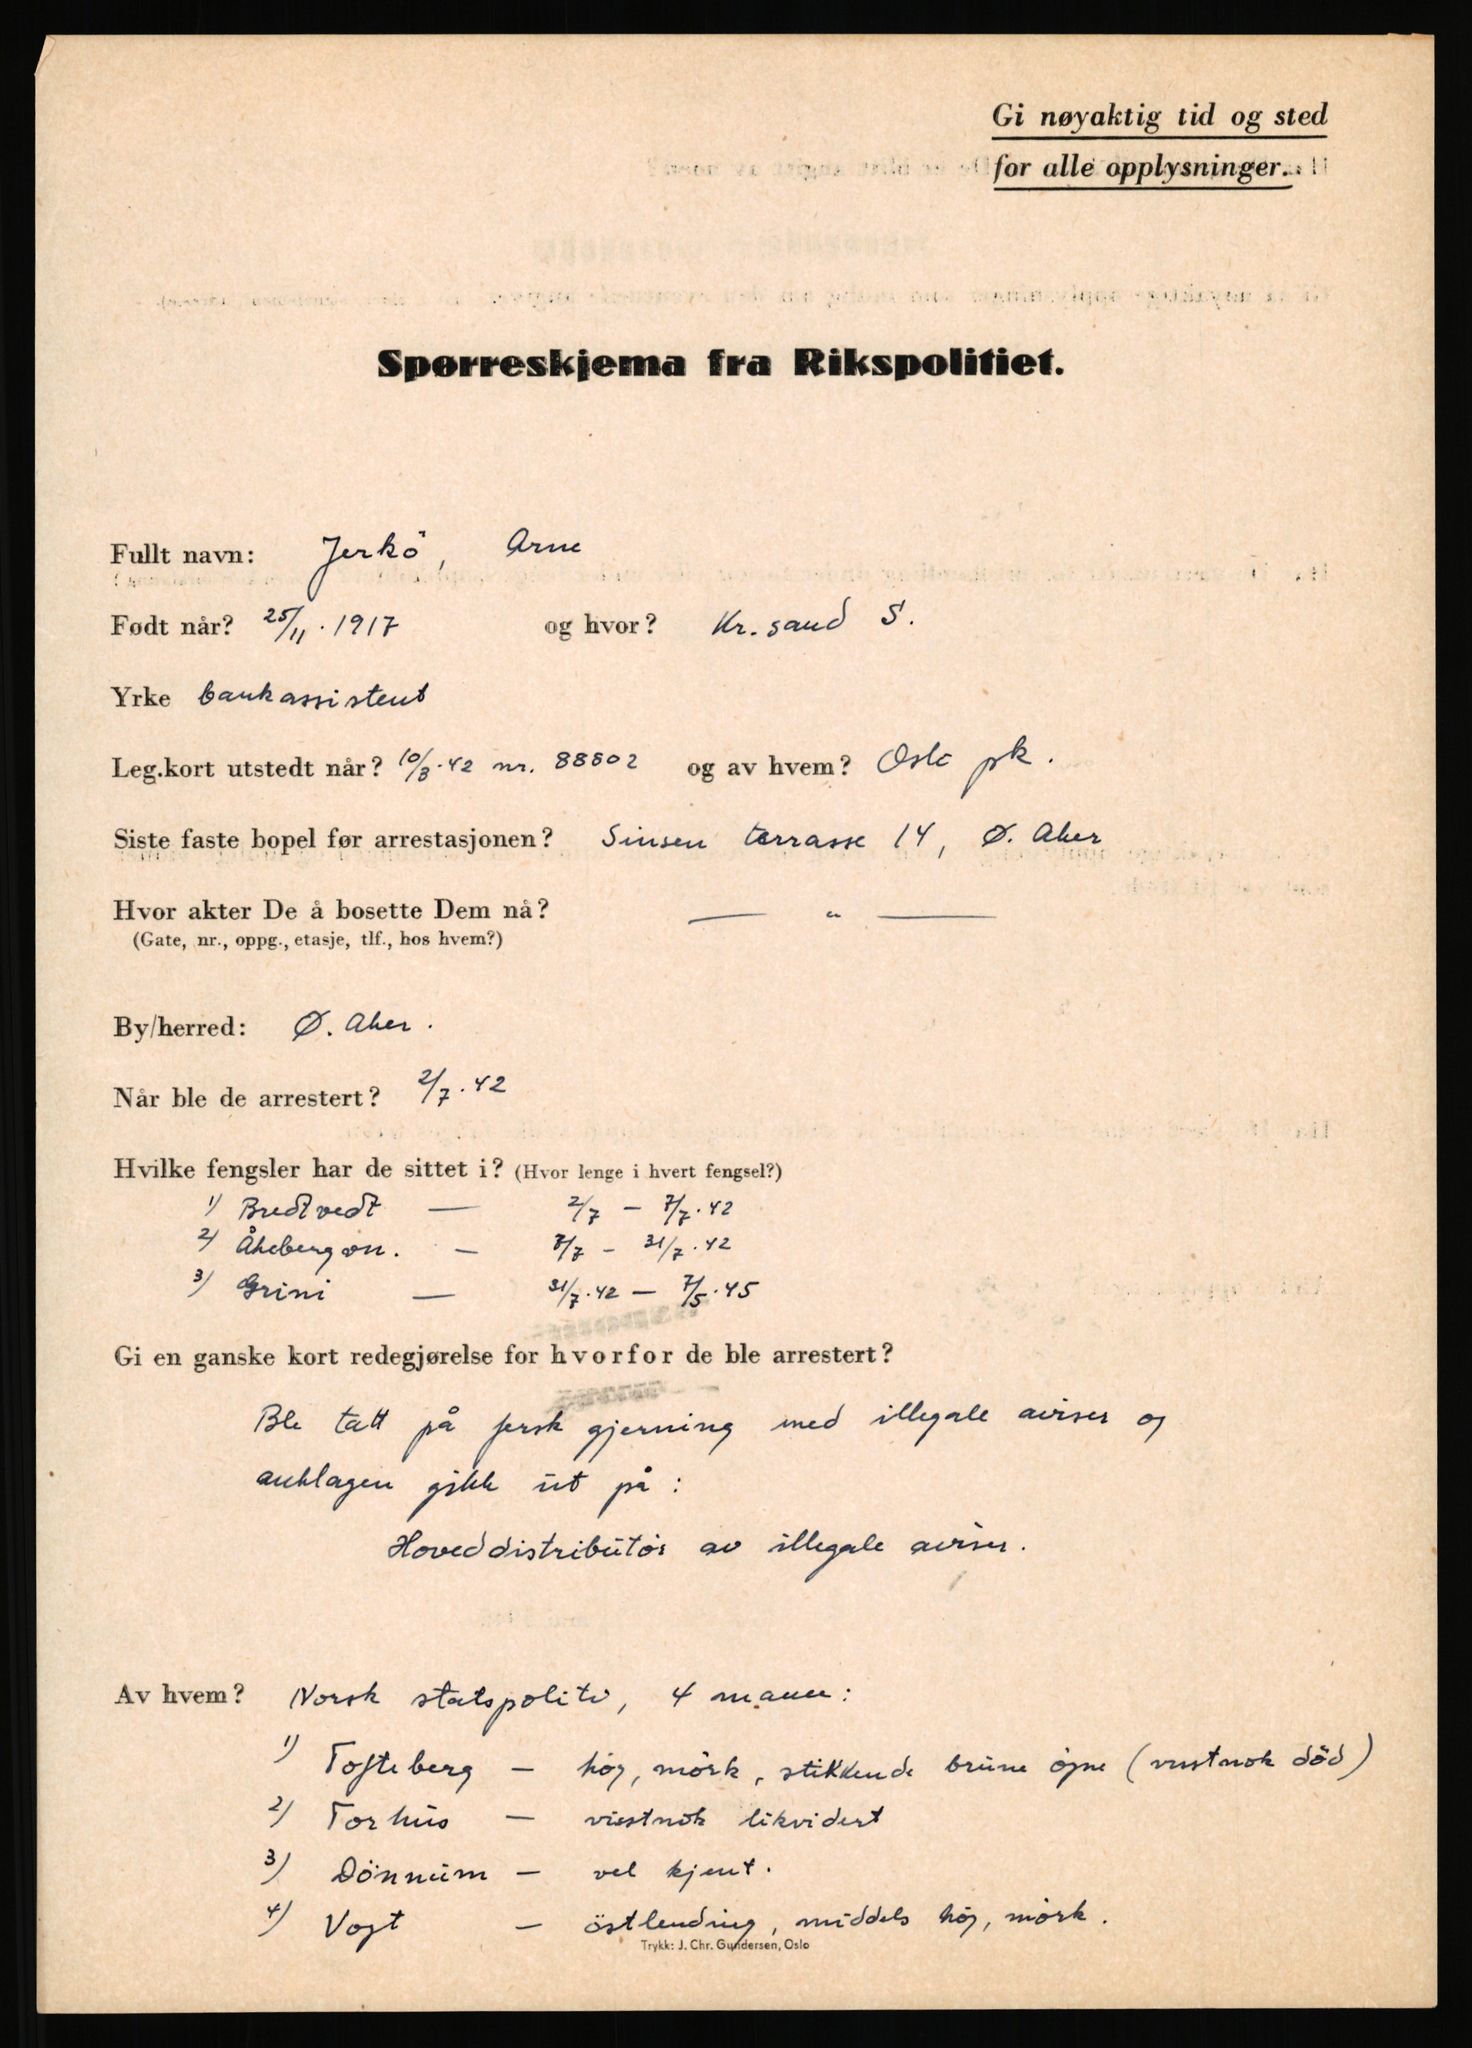 Gi nøyaktig tid og sted
for alle opplysninger.
Spørreskjema fra Rikspolitiet.
Fullt navn: Jerkö, Arne
Født når? 25/11.1917 og hvor? Kr. sand S.
Yrke bankassistent
Leg.kort utstedt når? 10/3.42 nr. 88802 og av hvem? Oslo pk.
Siste faste bopel før arrestasjonen? Sinsen terrasse 14, Ø. Aker
Hvor akter De å bosette Dem nå? — " —
(Gate, nr., oppg., etasje, tlf., hos hvem?)
By/herred: Ø. Aker.
Når ble de arrestert? 2/7.42
Hvilke fengsler har de sittet i? (Hvor lenge i hvert fengsel?)
1) Bredtvedt — 2/7 — 7/7.42
2) Åkebergvn. — 7/7 – 31/7.42
3) Grini — 31/7.42 — 7/5.45
Gi en ganske kort redegjørelse for hvorfor de ble arrestert?
Ble tatt på fersk gjerning med illegale aviser og
anklagen gikk ut på:
Hoveddistributör av illegale aviser.
Av hvem? Norsk statspoliti, 4 mann:
1) Tofteberg — höy, mörk, stikkende brune öyne (visstnok död)
2) Torhus — visstnok likvidert
3) Dönnum — vel kjent.
4) Vogt — östlending, middels höy, mörk.
Trykk: J. Chr. Gundersen, Oslo